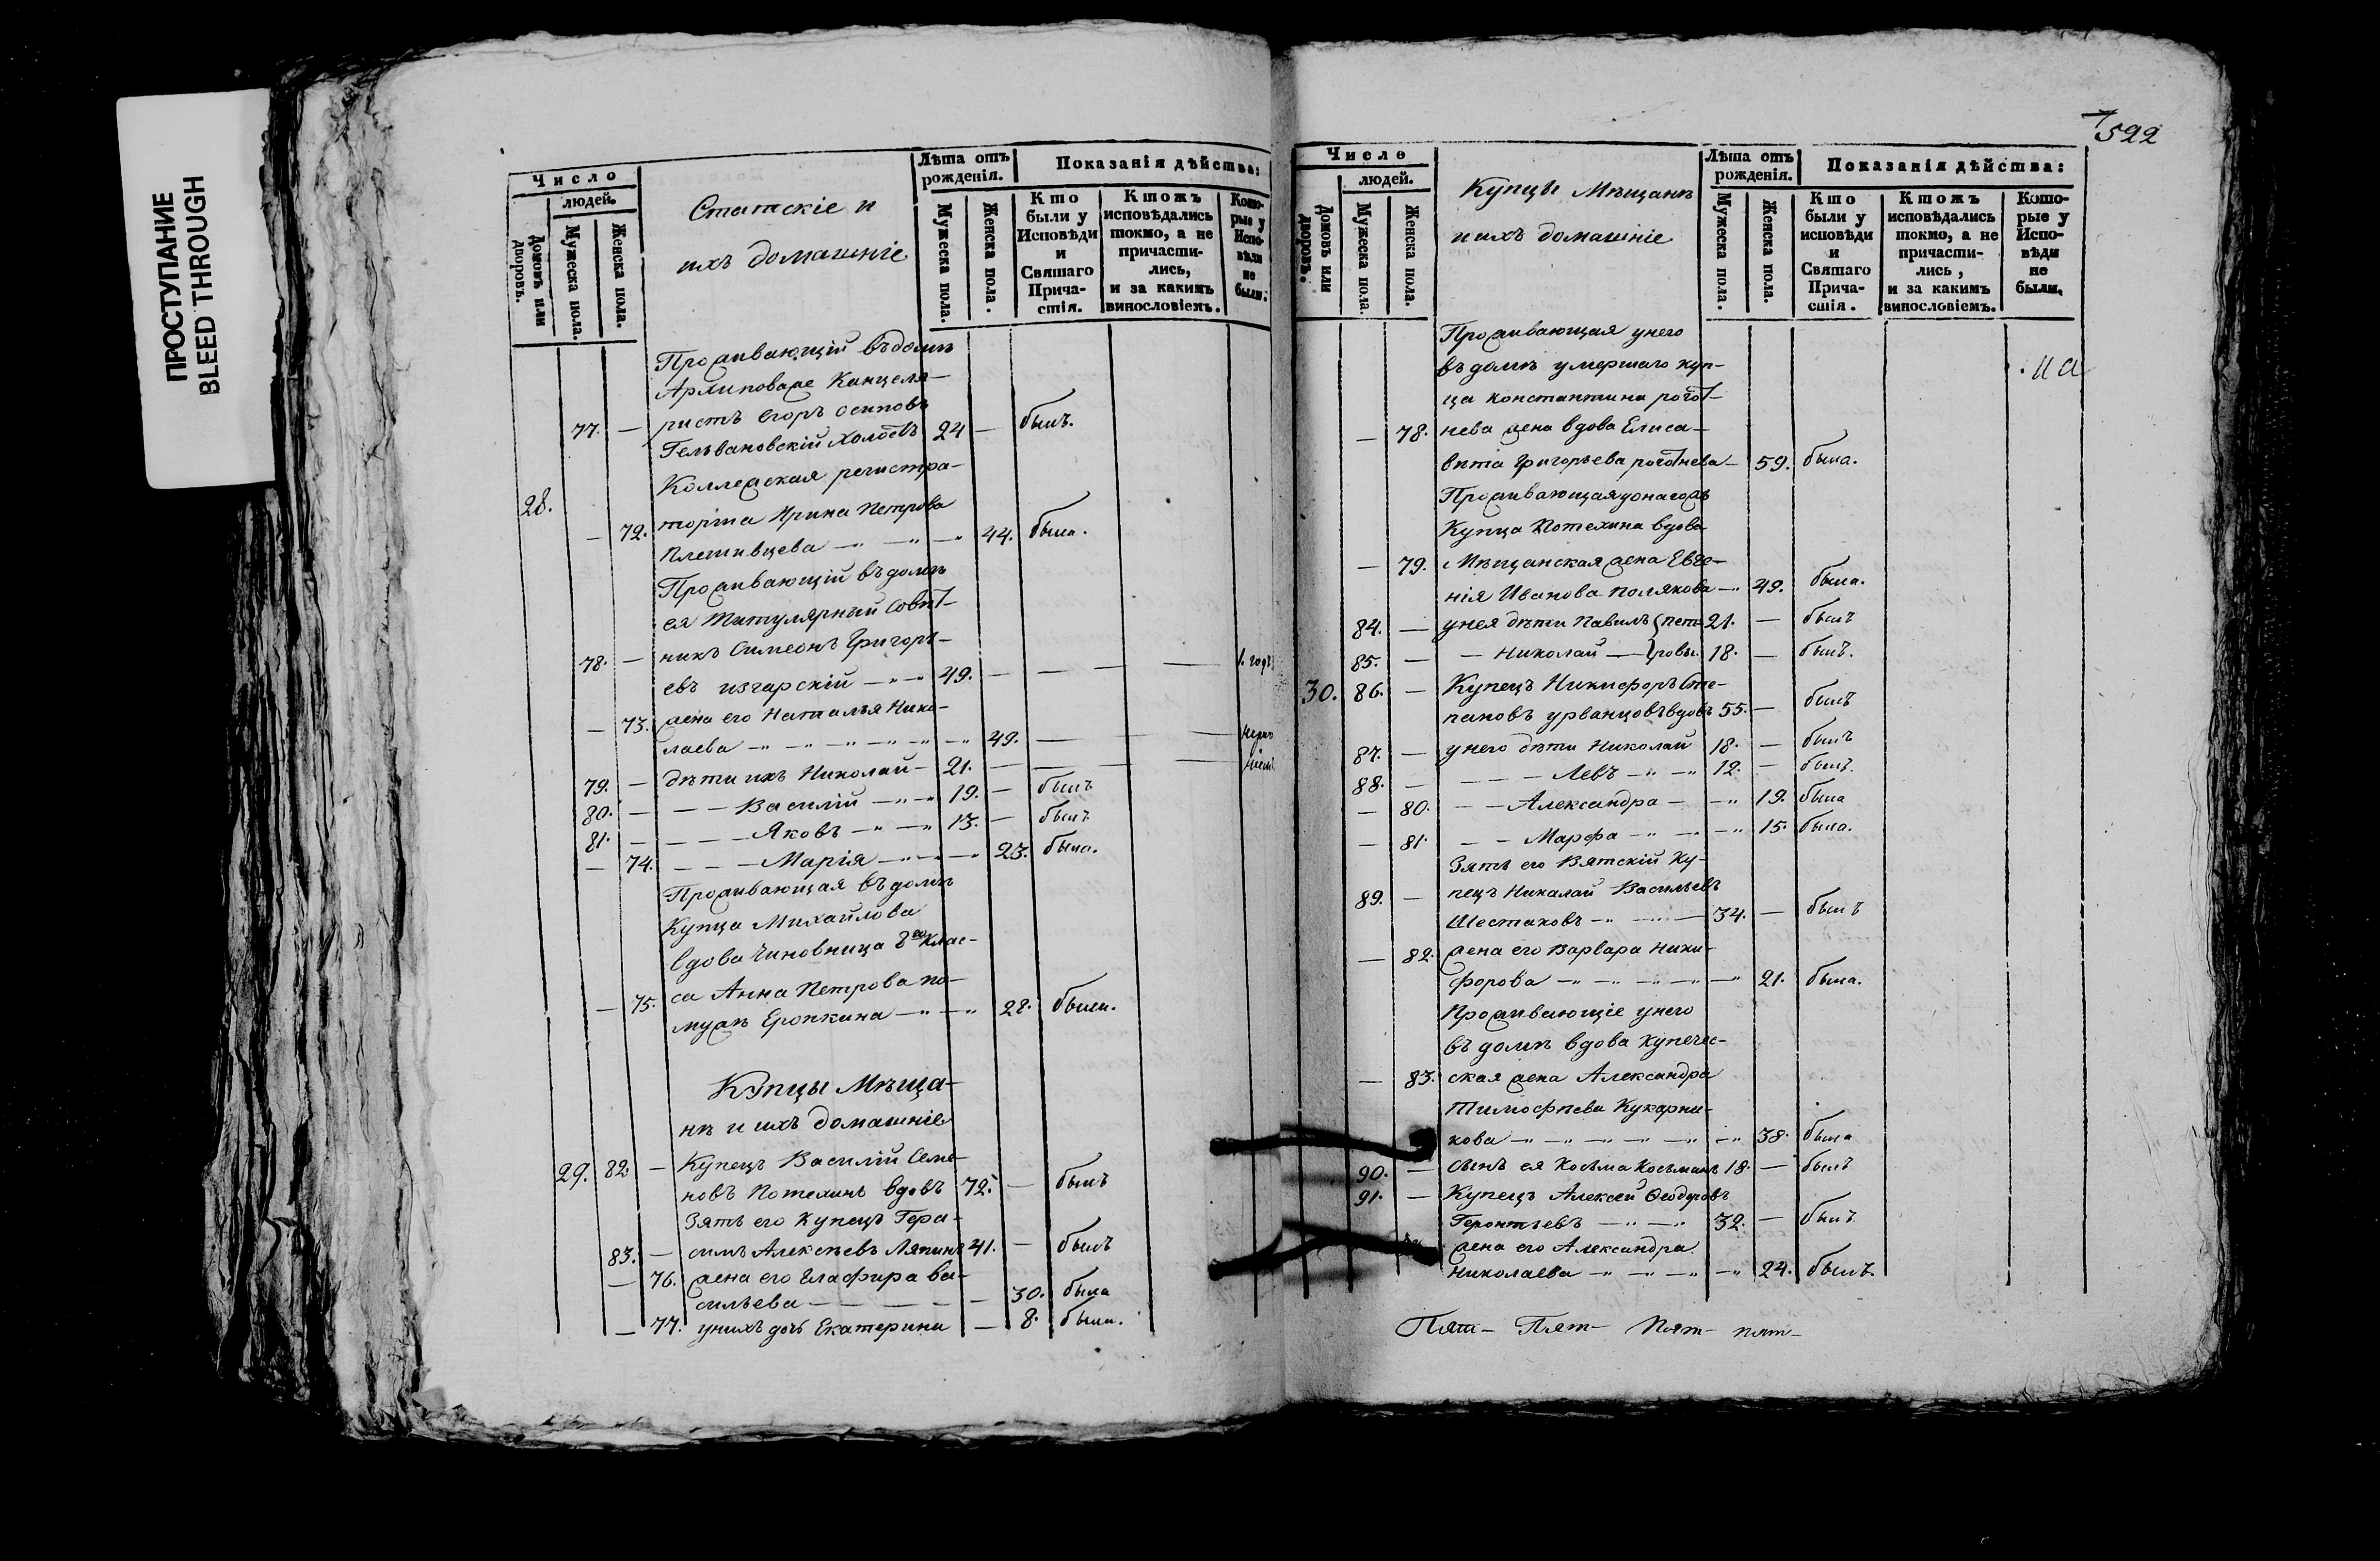 ПРОСТУПАНИЕ
BLEED THROUGH
Число
людей.
Домовъ или дворовъ.
Мужеска пола.
Женска пола.
Статскіе и
ихъ домашніе
Лѣта отъ
рожденія.
Мужеска пола.
Женска пола.
Показанія дѣйства:
Кто
были у
Исповѣди
и
Святаго
Прича-
стія.
Ктожъ
исповѣдались
токмо, а не
причасти-
лись,
и за какимъ
винословіемъ.
Кото-
рые у
Испо-
вѣди
не
были.
Проживающій въ домѣ
Канцеля-
77. — ристъ Егоръ Осиповъ
Гельвановскій холостъ 24 — былъ.
28. Коллежская регистра-
— 72. торша Ирина Петрова
Плешивцева — " — " — " 44. была.
Проживающій въ домѣ
ея Титулярный Совѣт-
78. — никъ Симеонъ Григорь-
евъ — " — " 49. — — — —
— 73. жена его Наталья Нико-
лаева — " — " — " — " — " — " 49. — — —
79. — дѣти ихъ Николай — 21. — — — —
80. — — — Василій — " — " 19. — былъ
81. — — — — Яковъ — " — " 13. — былъ
— 74. — — — Марія — " — " — " 23. была.
Проживающая въ домѣ
Купца Михайлова
вдова чиновница 8го клас-
— 75. са Анна Петрова по
мужѣ Еропкина — " — " 28. была.
Купцы Мѣща-
нѣ и ихъ домашніе
29. 82. — Купецъ Василій Семе-
новъ Потехинъ вдовъ 72. — былъ
Зять его Купецъ Гера-
83. — симъ Алексѣевъ Ляпинъ 41. — былъ
— 76. жена его Глафира Ва-
сильева — — — — — — 30. была
— 77. у нихъ дочь Екатерина — 8. была.
522
Число
людей.
Домовъ или дворовъ.
Мужеска пола.
Женска пола.
Купцы Мѣщанѣ
и ихъ домашніе
Лѣта отъ
рожденія.
Мужеска пола.
Женска пола.
Показанія дѣйства:
Кто
были у
исповѣди
и
Святаго
Прича-
стія.
Ктожъ
исповѣдались
токмо, а не
причасти-
лись,
и за какимъ
винословіемъ.
Кото-
рые у
Испо-
вѣди
не
были.
Проживающая у него
въ домѣ умершаго куп-
ца Константина Рогот-
— 78. нева жена вдова Елиса-
вѣта Григорьева Роготнева — 59. была.
Проживающая
Купца Потехина вдова
— 79. Мѣщанская жена Евге-
нія Иванова Полякова — " 49. была.
84. — у нея дѣти Павелъ { Пет- 21. — былъ
85. — — Николай — } ровы. 18. — былъ.
30. 86. — Купецъ Никифоръ Сте-
пановъ Урванцовъ вдовъ 55. — былъ
87. — у него дѣти Николай 18. — былъ
88. — — — — Левъ — " — " 12. — былъ.
— 80. — — Александра — — " 19. была
— 81. — — Марфа — " — " — " 15. была.
Зять его Вятскій Ку-
89. — пецъ Николай Васильевъ
Шестаковъ — " — " — 34. — былъ
— 82. жена его Варвара Ники-
форова — " — " — " — " — " 21. была.
Проживающіе у него
въ домѣ вдова купечес-
— 83. ская жена Александра
Тимофѣева Кукарни-
кова — " — " — " — " — " — " 38. была
90. — сынъ ея Косьма Косьминъ 18. — былъ
91. — Купецъ Алексѣй Ѳеодоровъ
Геронтьевъ — " — " 32. — былъ
жена его Александра
Николаева — " — " — " — " 24. былъ.
Пят- Пят- Пят- пят-